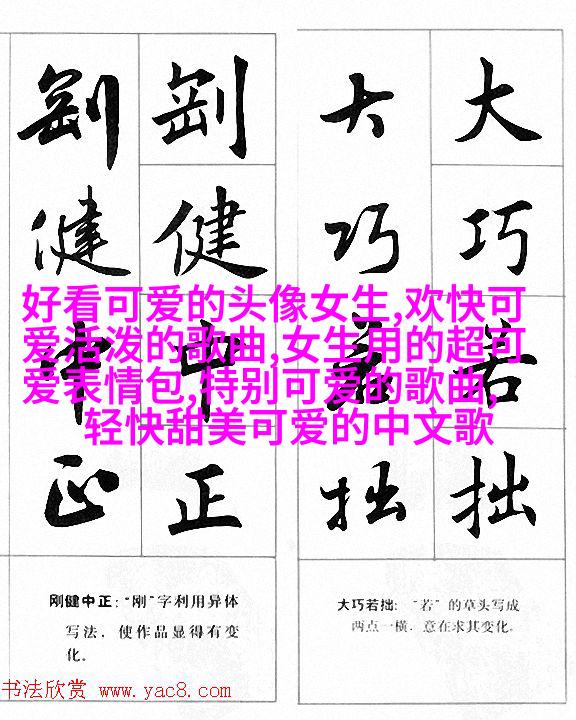 剛 剛 大 大
健 健 巧 巧
中 中 若 若
正 正 拙 拙
好看可爱的头像女生,欢快可
爱活泼的歌曲,女生用的超可
爱表情包,特别可爱的歌曲,
轻快甜美可爱的中文歌
刚健中正:“刚”字利用异体
写法，使作品显得有变
化。
大巧若拙: “若”的草头写成
两点一横，意在求其变化。
书法欣赏 www.yac8.com